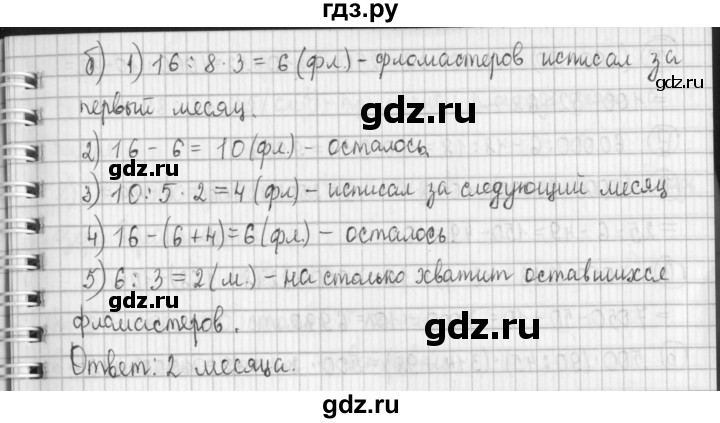 гдз.ру
б) 1) 16 : 8 · 3 = 6 (фл) - фломастеров исписал за
первый месяц.
gdz.ru
gdz.ru
2) 16 - 6 = 10 (фл) - осталось
gdz.ru
3) 10 : 5 · 2 = 4 (фл) - исписал за следующий месяц
4) 16 - (6 + 4) = 6 (фл.) - осталось
5) 6 : 3 = 2 (м.) - на столько хватит оставшихся
gdz.ru
фломастеров.
gdz.ru
Ответ: 2 месяца.
gdz.ru
gdz.ru